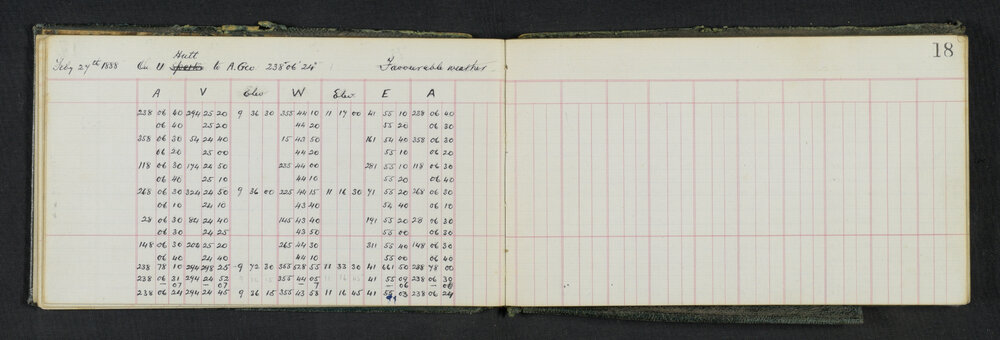 18
Hutt
Feby 27th 1888 On U to A. Geo 238° 06' 24" Favourable weather
A V Elev W Elev E A
238 06 40 294 25 20 9 36 30 355 44 10 11 17 00 41 55 10 238 06 40
06 40 25 20 44 20 55 20 06 30
358 06 30 54 24 40 15 43 50 161 54 40 358 06 30
06 20 25 00 44 20 55 10 06 20
118 06 30 174 24 50 235 44 00 281 55 10 118 06 30
06 40 25 10 44 10 55 20 06 30
268 06 30 324 24 50 9 36 00 225 44 15 11 16 30 71 55 20 268 06 30
06 10 24 10 43 40 54 40 06 10
28 06 30 84 24 40 145 43 40 191 55 20 28 06 30
06 30 24 25 43 50 55 00 06 30
148 06 30 204 25 20 265 44 30 311 55 40 148 06 30
06 40 24 40 44 10 55 00 06 40
238 78 10 294 298 25 9 72 30 355 528 55 11 33 30 41 661 50 238 78 00
238 06 31 294 24 52 355 44 05 41 55 09 238 06 30
— 07 — 07 — 7 — 06 — 06
238 06 24 294 24 45 9 36 15 355 43 58 11 16 45 41 55 03 238 06 24